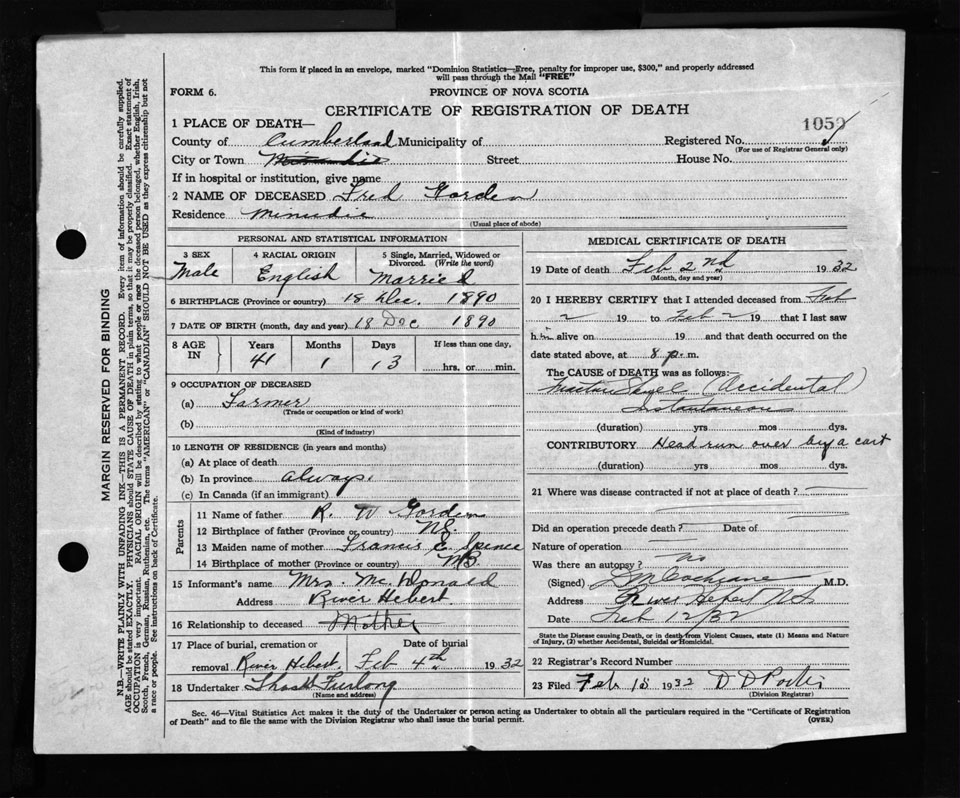 This form if placed in an envelope, marked "Dominion Statistics—Free, penalty for improper use, $300," and properly addressed
will pass through the Mail "FREE"
FORM 6.
PROVINCE OF NOVA SCOTIA
CERTIFICATE OF REGISTRATION OF DEATH
1059
1 PLACE OF DEATH—
County of Cumberland Municipality of Registered No.
(For use of Registrar General only)
City or Town Street House No.
If in hospital or institution, give name
2 NAME OF DECEASED Fred Gorden
Residence Minudie
(Usual place of abode)
PERSONAL AND STATISTICAL INFORMATION
3 SEX 4 RACIAL ORIGIN 5 Single, Married, Widowed or Divorced. (Write the word)
Male English Married
6 BIRTHPLACE (Province or country) 18 Dec. 1890
7 DATE OF BIRTH (month, day and year) 18 Dec 1890
8 AGE IN Years Months Days If less than one day,
41 1 13 hrs. or min.
9 OCCUPATION OF DECEASED
(a) Farmer
(Trade or occupation or kind of work)
(b)
(Kind of industry)
10 LENGTH OF RESIDENCE (in years and months)
(a) At place of death
(b) In province always.
(c) In Canada (if an immigrant)
Parents
11 Name of father R. W Gorden
12 Birthplace of father (Province or country) NS.
13 Maiden name of mother Francis E. Spence
14 Birthplace of mother (Province or country) NB.
15 Informant's name Mrs. McDonald
Address River Hebert.
16 Relationship to deceased Mother
17 Place of burial, cremation or Date of burial
removal River Hebert. Feb 4th 1932
18 Undertaker Furlong
(Name and address)
MEDICAL CERTIFICATE OF DEATH
19 Date of death Feb 2nd 1932
(Month, day and year)
20 I HEREBY CERTIFY that I attended deceased from Feb
2 19 to Feb 2 19 that I last saw
him alive on 19 and that death occurred on the
date stated above, at 8 p. m.
The CAUSE OF DEATH was as follows:
Fracture Skull (Accidental)
Instantaneous
(duration) yrs mos dys.
CONTRIBUTORY Head run over by a cart
(duration) yrs mos dys.
21 Where was disease contracted if not at place of death?
Did an operation precede death? Date of
Nature of operation
Was there an autopsy? No
(Signed) Cochrane M.D.
Address River Hebert NS
Date Feb 12/32
State the Disease causing Death, or in death from Violent Causes, state (1) Means and Nature
of Injury, (2) whether Accidental, Suicidal or Homicidal.
22 Registrar's Record Number
23 Filed Feb 18 1932 D D Porter
(Division Registrar)
Sec. 46—Vital Statistics Act makes it the duty of the Undertaker or person acting as Undertaker to obtain all the particulars required in the "Certificate of Registration
of Death" and to file the same with the Division Registrar who shall issue the burial permit. (OVER)
MARGIN RESERVED FOR BINDING
N.B.—WRITE PLAINLY WITH UNFADING INK—THIS IS A PERMANENT RECORD. Every item of information should be carefully supplied.
AGE should be stated EXACTLY. PHYSICIANS should STATE CAUSE OF DEATH in plain terms, so that it may be properly classified. Exact statement of
OCCUPATION is very important. RACIAL ORIGIN will be described by stating to what people or race the deceased person belonged, whether English, Irish,
Scotch, French, German, Russian, Ruthenian, etc. The terms "AMERICAN" or "CANADIAN" SHOULD NOT BE USED as they express citizenship but not
a race or people. See instructions on back of Certificate.